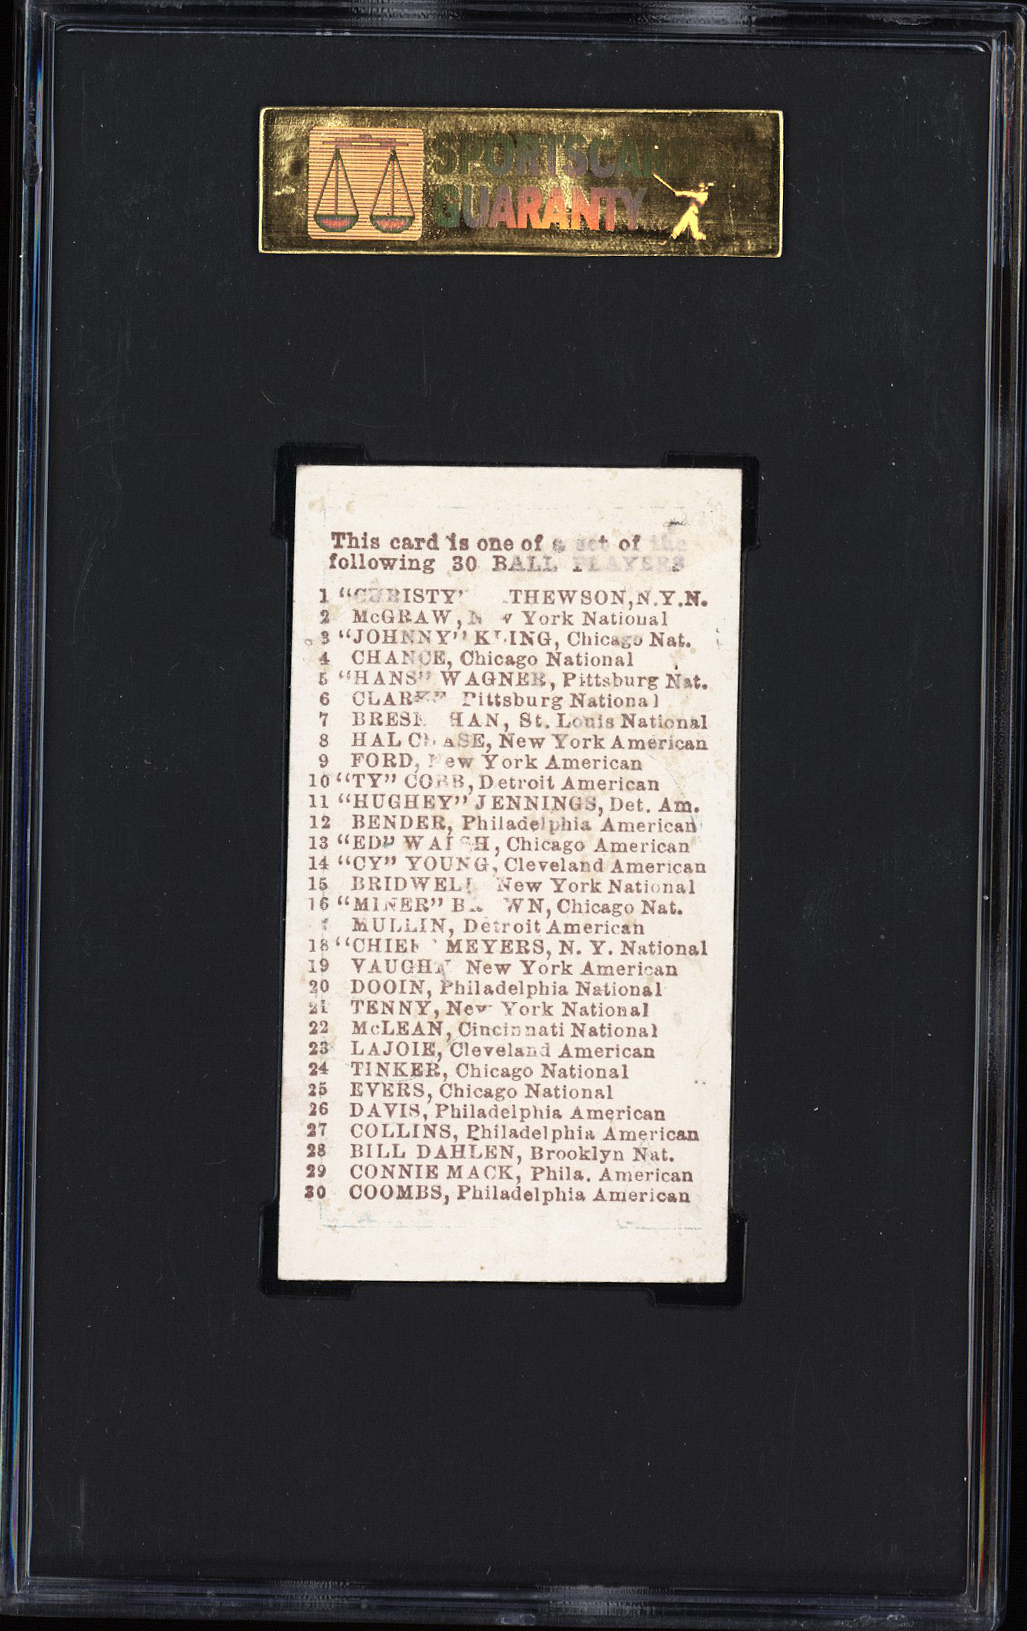 SPORTSCARD
GUARANTY
This card is one of a set of the
following 30 BALL PLAYERS
1 "CHRISTY" THEWSON, N.Y.N.
2 McGRAW, York National
3 "JOHNNY" KLING, Chicago Nat.
4 CHANCE, Chicago National
5 "HANS" WAGNER, Pittsburg Nat.
6 CLARKE Pittsburg National
7 BRES HAN, St. Louis National
8 HAL CHASE, New York American
9 FORD, New York American
10 "TY" COBB, Detroit American
11 "HUGHEY" JENNINGS, Det. Am.
12 BENDER, Philadelphia American
13 "ED" WALSH, Chicago American
14 "CY" YOUNG, Cleveland American
15 BRIDWELL New York National
16 "MINER" B WN, Chicago Nat.
MULLIN, Detroit American
18 "CHIEF" MEYERS, N. Y. National
19 VAUGHN New York American
20 DOOIN, Philadelphia National
21 TENNY, New York National
22 McLEAN, Cincinnati National
23 LAJOIE, Cleveland American
24 TINKER, Chicago National
25 EVERS, Chicago National
26 DAVIS, Philadelphia American
27 COLLINS, Philadelphia American
28 BILL DAHLEN, Brooklyn Nat.
29 CONNIE MACK, Phila. American
30 COOMBS, Philadelphia American